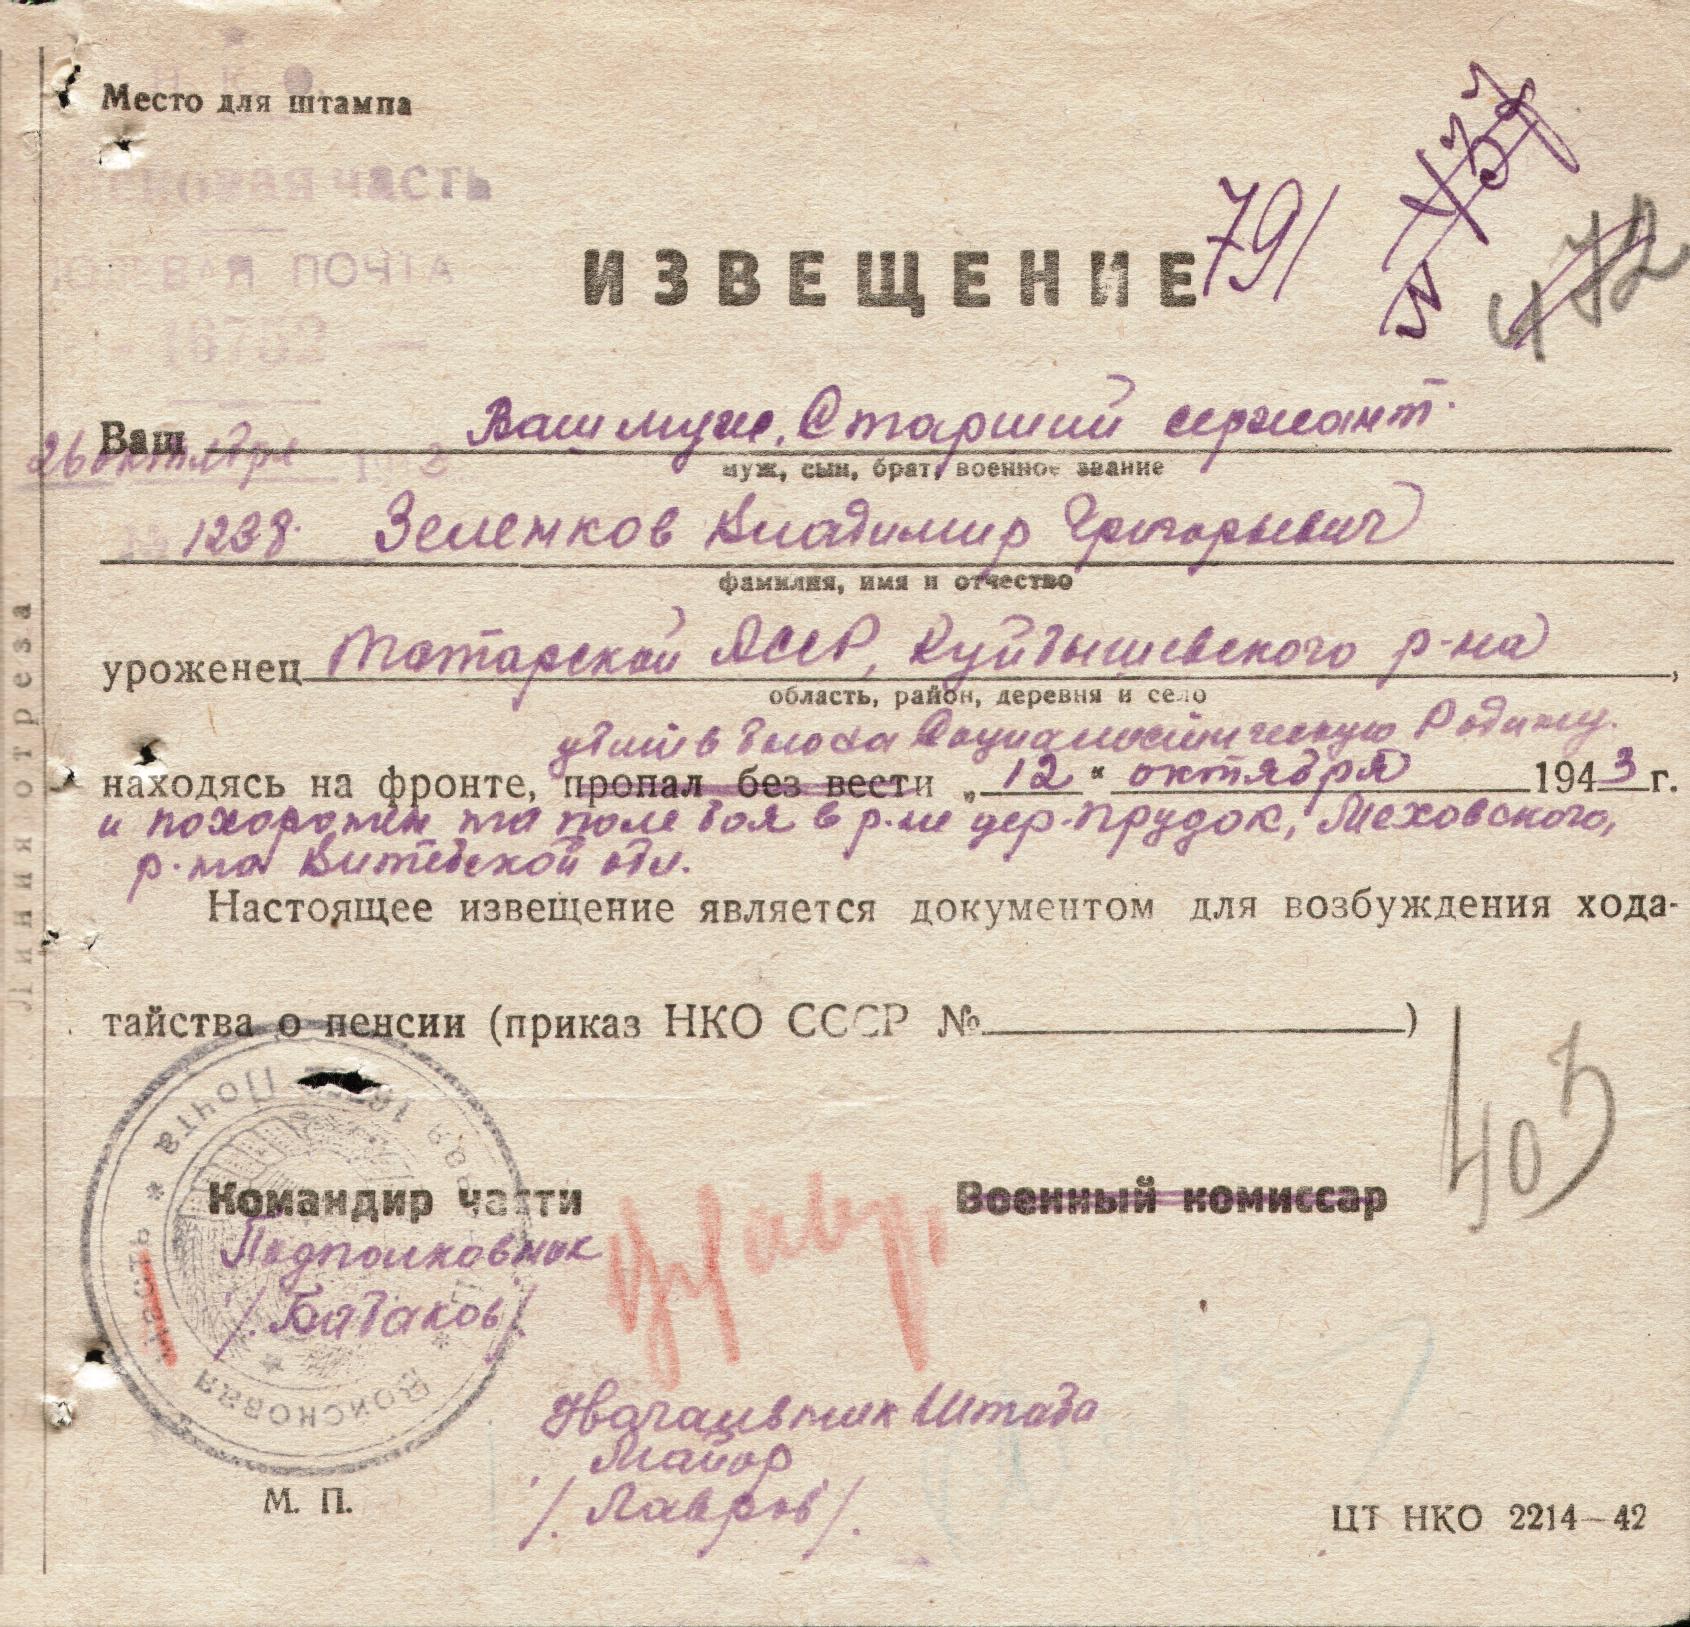 Место для штампа
НКО
Войсковая часть
ПОЛЕВАЯ ПОЧТА
16752
ИЗВЕЩЕНИЕ
791
472
Ваш Ваш муж, Старший сержант.
муж, сын, брат, военное звание
26 октября 194
№ 1238. Зеленков Владимир Григорьевич
фамилия, имя и отчество
уроженец Татарской АССР, Куйбышевского р-на,
область, район, деревня и село
убит в бою за Социалистическую Родину.
находясь на фронте, пропал без вести „12“ октября 1943 г.
и похоронен на поле боя в р-не дер. Прудок, Меховского,
р-на Витебской обл.
Настоящее извещение является документом для возбуждения хода-
тайства о пенсии (приказ НКО СССР №)
403
Командир части
Военный комиссар
Подполковник
/. Батаков /.
Начальник Штаба
Майор
/. Лавров /.
Войсковая часть * Полевая Почта *
М. П.
ЦТ НКО 2214—42
Линия отреза